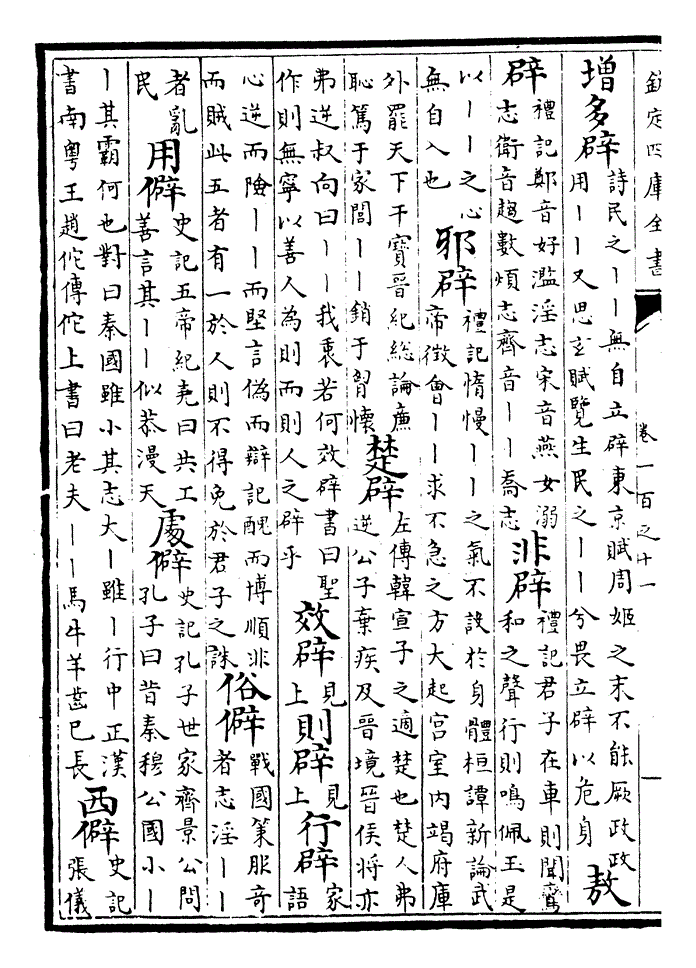 欽定四庫全書 卷一百之十一 一
增多辟
詩民之丨丨無自立辟東京賦周姬之末不能厥政政
用丨丨又思𤣥賦覽生民之丨丨兮畏立辟以危身
敖
辟
禮記鄭音好濫淫志宋音燕女溺
志衛音趨數煩志齊音丨丨喬志
非辟
禮記君子在車則聞鸞
和之聲行則鳴佩玉是
以丨丨之心
無自入也
邪辟
禮記惰慢丨丨之氣不設於身體桓譚新論武
帝徵會丨丨求不急之方大起宮室内竭府庫
外罷天下干寶晉紀總論㢘
恥篤于家閭丨丨銷于胷懷
楚辟
左傳韓宣子之適楚也楚人弗
逆公子棄疾及晉境晉侯將亦
弗逆叔向曰丨丨我衷若何效辟書曰聖
作則無寧以善人為則而則人之辟乎
效辟
見
上
則辟
見
上
行辟
家
語
心逆而險丨丨而堅言偽而辯記醜而博順非
而賊此五者有一於人則不得免於君子之誅
俗僻
戰國策服奇
者志淫丨丨
者亂
民
用僻
史記五帝紀堯曰共工
善言其丨丨似恭漫天
處僻
史記孔子世家齊景公問
孔子曰昔秦穆公國小丨
丨其霸何也對曰秦國雖小其志大丨雖丨行中正漢
書南粤王趙佗傳佗上書曰老夫丨丨馬牛羊齒已長
西僻
史記
張儀